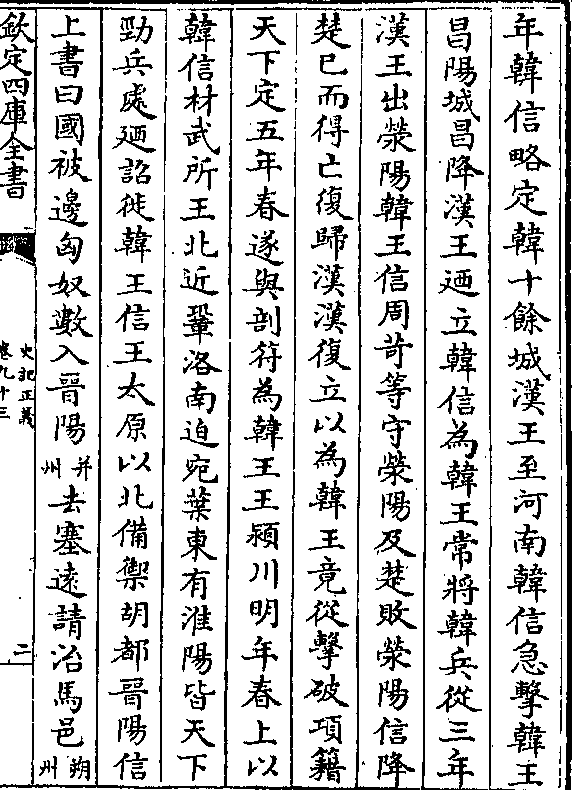 年韓信略定韓十餘城漢王至河南韓信急擊韓王
昌陽城昌降漢王迺立韓信為韓王常將韓兵從三年
漢王出滎陽韓王信周苛等守滎陽及楚敗滎陽信降
楚已而得亡復歸漢漢復立以為韓王竟從擊破項籍
天下定五年春遂與剖符為韓王王潁川明年春上以
韓信材武所王北近鞏洛南迫宛葉東有淮陽皆天下
勁兵處迺詔徙韓王信王太原以北備禦胡都晉陽信
上書曰國被邊匈奴數入晉陽并州去塞遠請治馬邑朔州
欽定四庫全書
史記正義
卷九十三
二